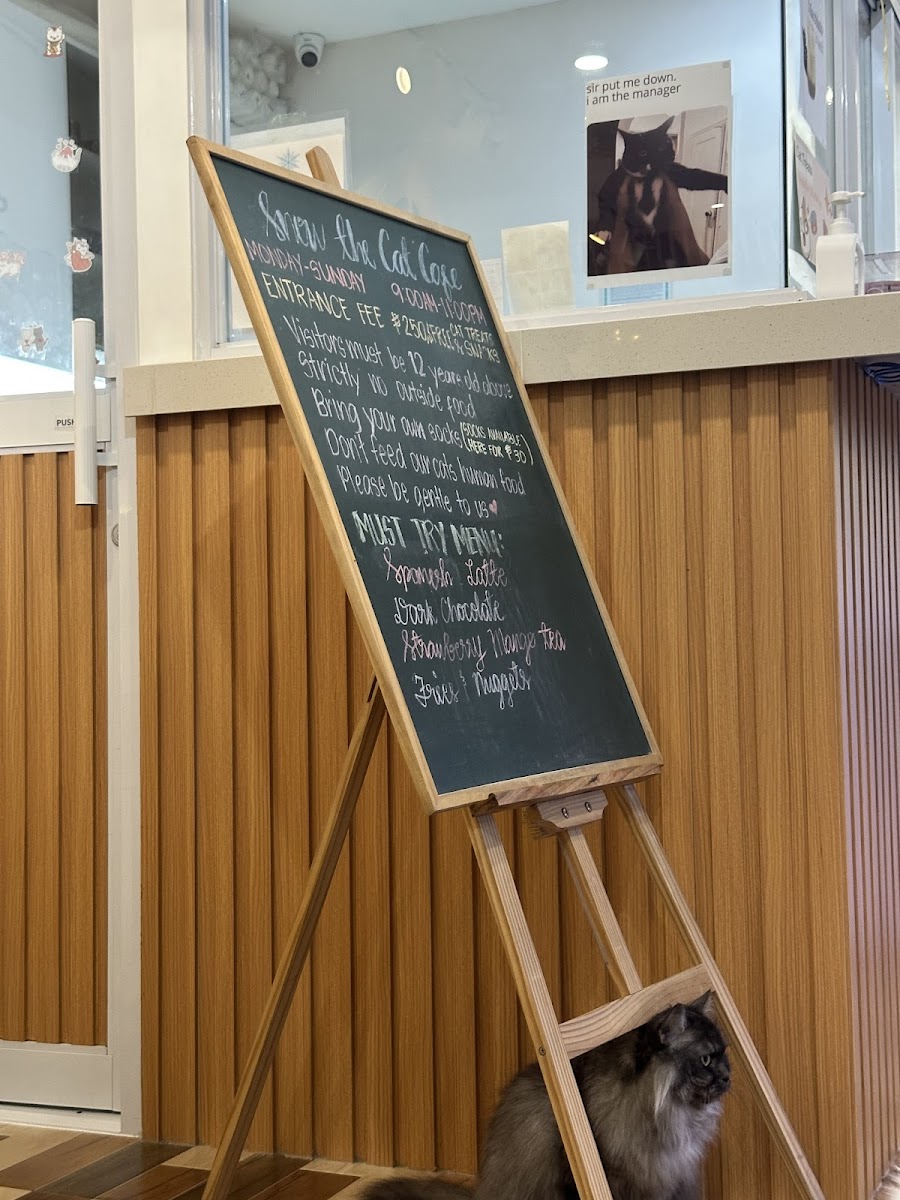 sir put me down.
i am the manager
Snow the Cat Cafe
MONDAY-SUNDAY 9:00AM-11:00PM
ENTRANCE FEE ₱250 W/FREE CAT TREATS & SNACKS
Visitors must be 12 years old above
Strictly no outside food
Bring your own socks! (SOCKS AVAILABLE HERE FOR ₱30)
Don't feed our cats human food
Please be gentle to us
MUST TRY MENU:
Spanish Latte
Dark Chocolate
Strawberry Mango tea
Fries & Nuggets
PUSH